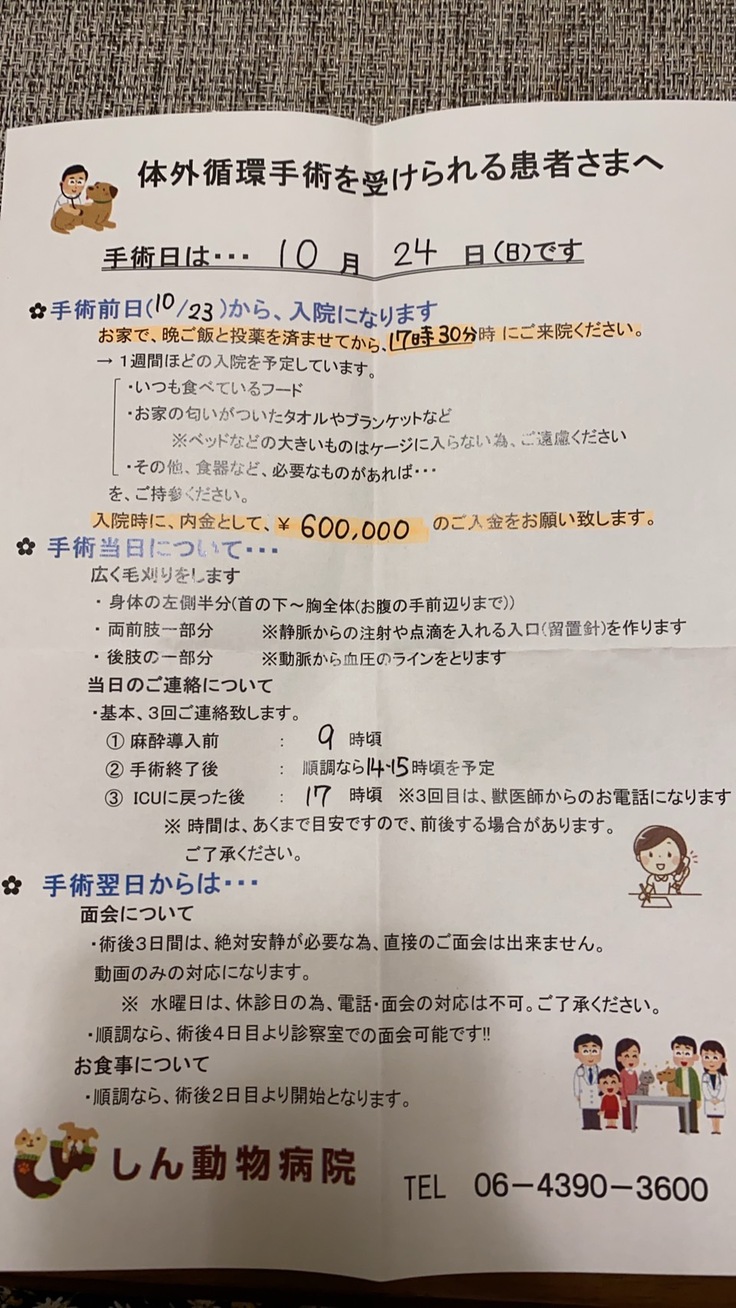 体外循環手術を受けられる患者さまへ
手術日は・・・ 10 月 24 日(日)です
✿手術前日(10/23)から、入院になります
お家で、晩ご飯と投薬を済ませてから、17時30分時 にご来院ください。
→ 1週間ほどの入院を予定しています。
・いつも食べているフード
・お家の匂いがついたタオルやブランケットなど
※ベッドなどの大きいものはケージに入らない為、ご遠慮ください
・その他、食器など、必要なものがあれば・・・
を、ご持参ください。
入院時に、内金として、¥ 600,000 のご入金をお願い致します。
✿ 手術当日について・・・
広く毛刈りをします
・ 身体の左側半分(首の下～胸全体(お腹の手前辺りまで))
・ 両前肢一部分 ※静脈からの注射や点滴を入れる入口(留置針)を作ります
・ 後肢の一部分 ※動脈から血圧のラインをとります
当日のご連絡について
・基本、3回ご連絡致します。
① 麻酔導入前 : 9 時頃
② 手術終了後 : 順調なら14-15時頃を予定
③ ICUに戻った後 : 17 時頃 ※3回目は、獣医師からのお電話になります
※ 時間は、あくまで目安ですので、前後する場合があります。
ご了承ください。
✿ 手術翌日からは・・・
面会について
・術後3日間は、絶対安静が必要な為、直接のご面会は出来ません。
動画のみの対応になります。
※ 水曜日は、休診日の為、電話・面会の対応は不可。ご了承ください。
・順調なら、術後4日目より診察室での面会可能です!!
お食事について
・順調なら、術後2日目より開始となります。
しん動物病院 TEL 06－4390－3600